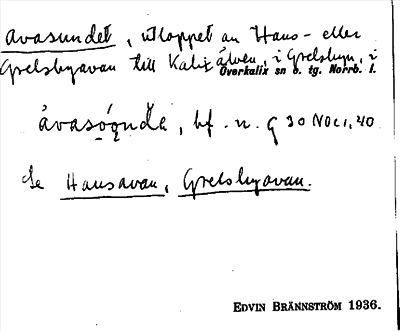 avasundet, utloppet av Hans- eller
Grelsbyavan till Kalix älven, i Grelsbyn, i
Överkalix sn o. tg. Norrb. l.
bf. n. G 30 NOC1,40
Se Hansavan, Grelsbyavan.
EDVIN BRÄNNSTRÖM 1936.